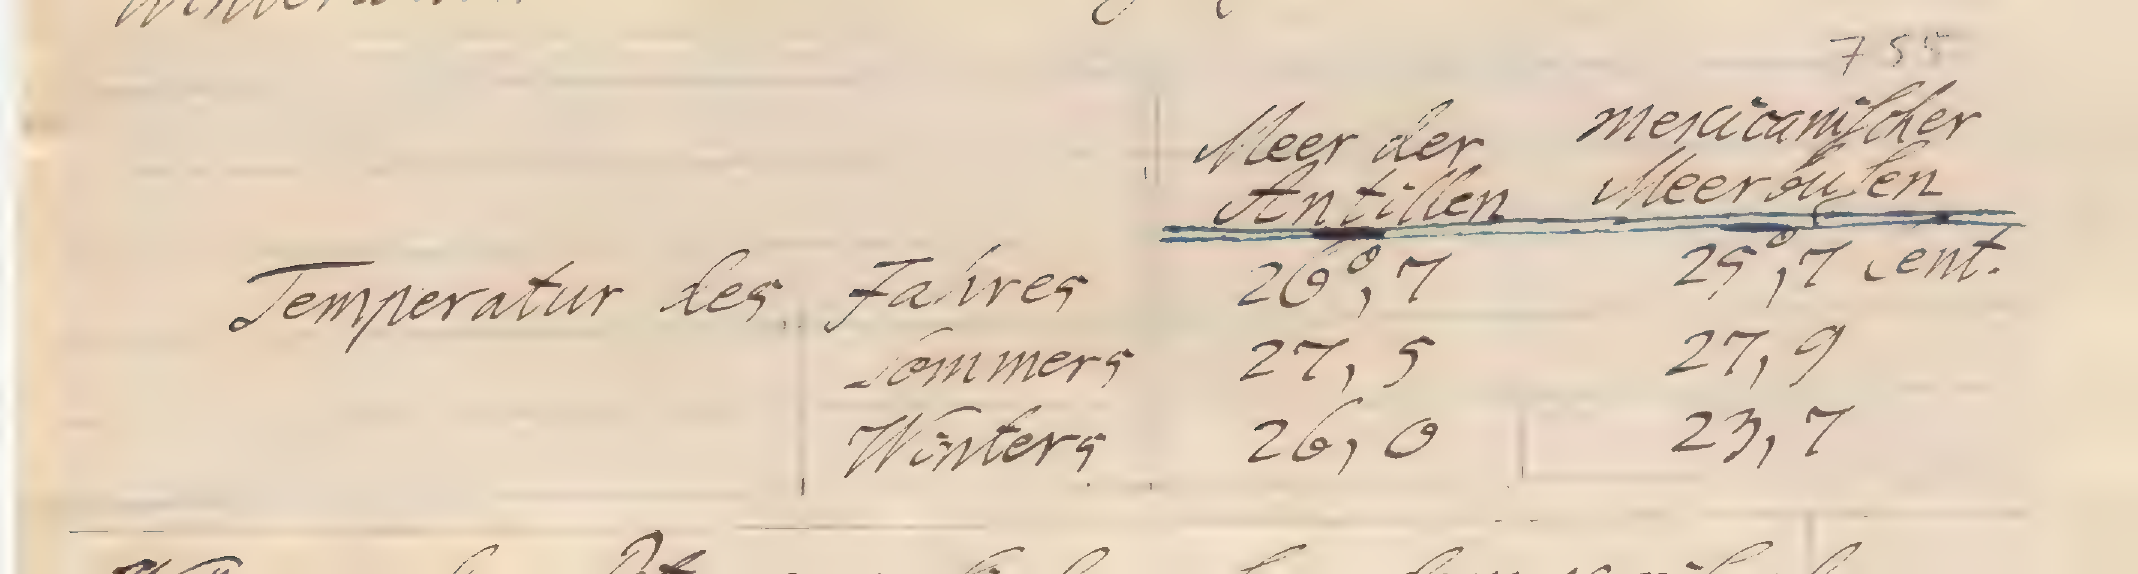 755
Meer der mexicanischer
Antillen Meerbusen
Temperatur des Jahres 26°,7 25°,7 cent.
Sommers 27,5 27,9
Winters 26,0 23,7